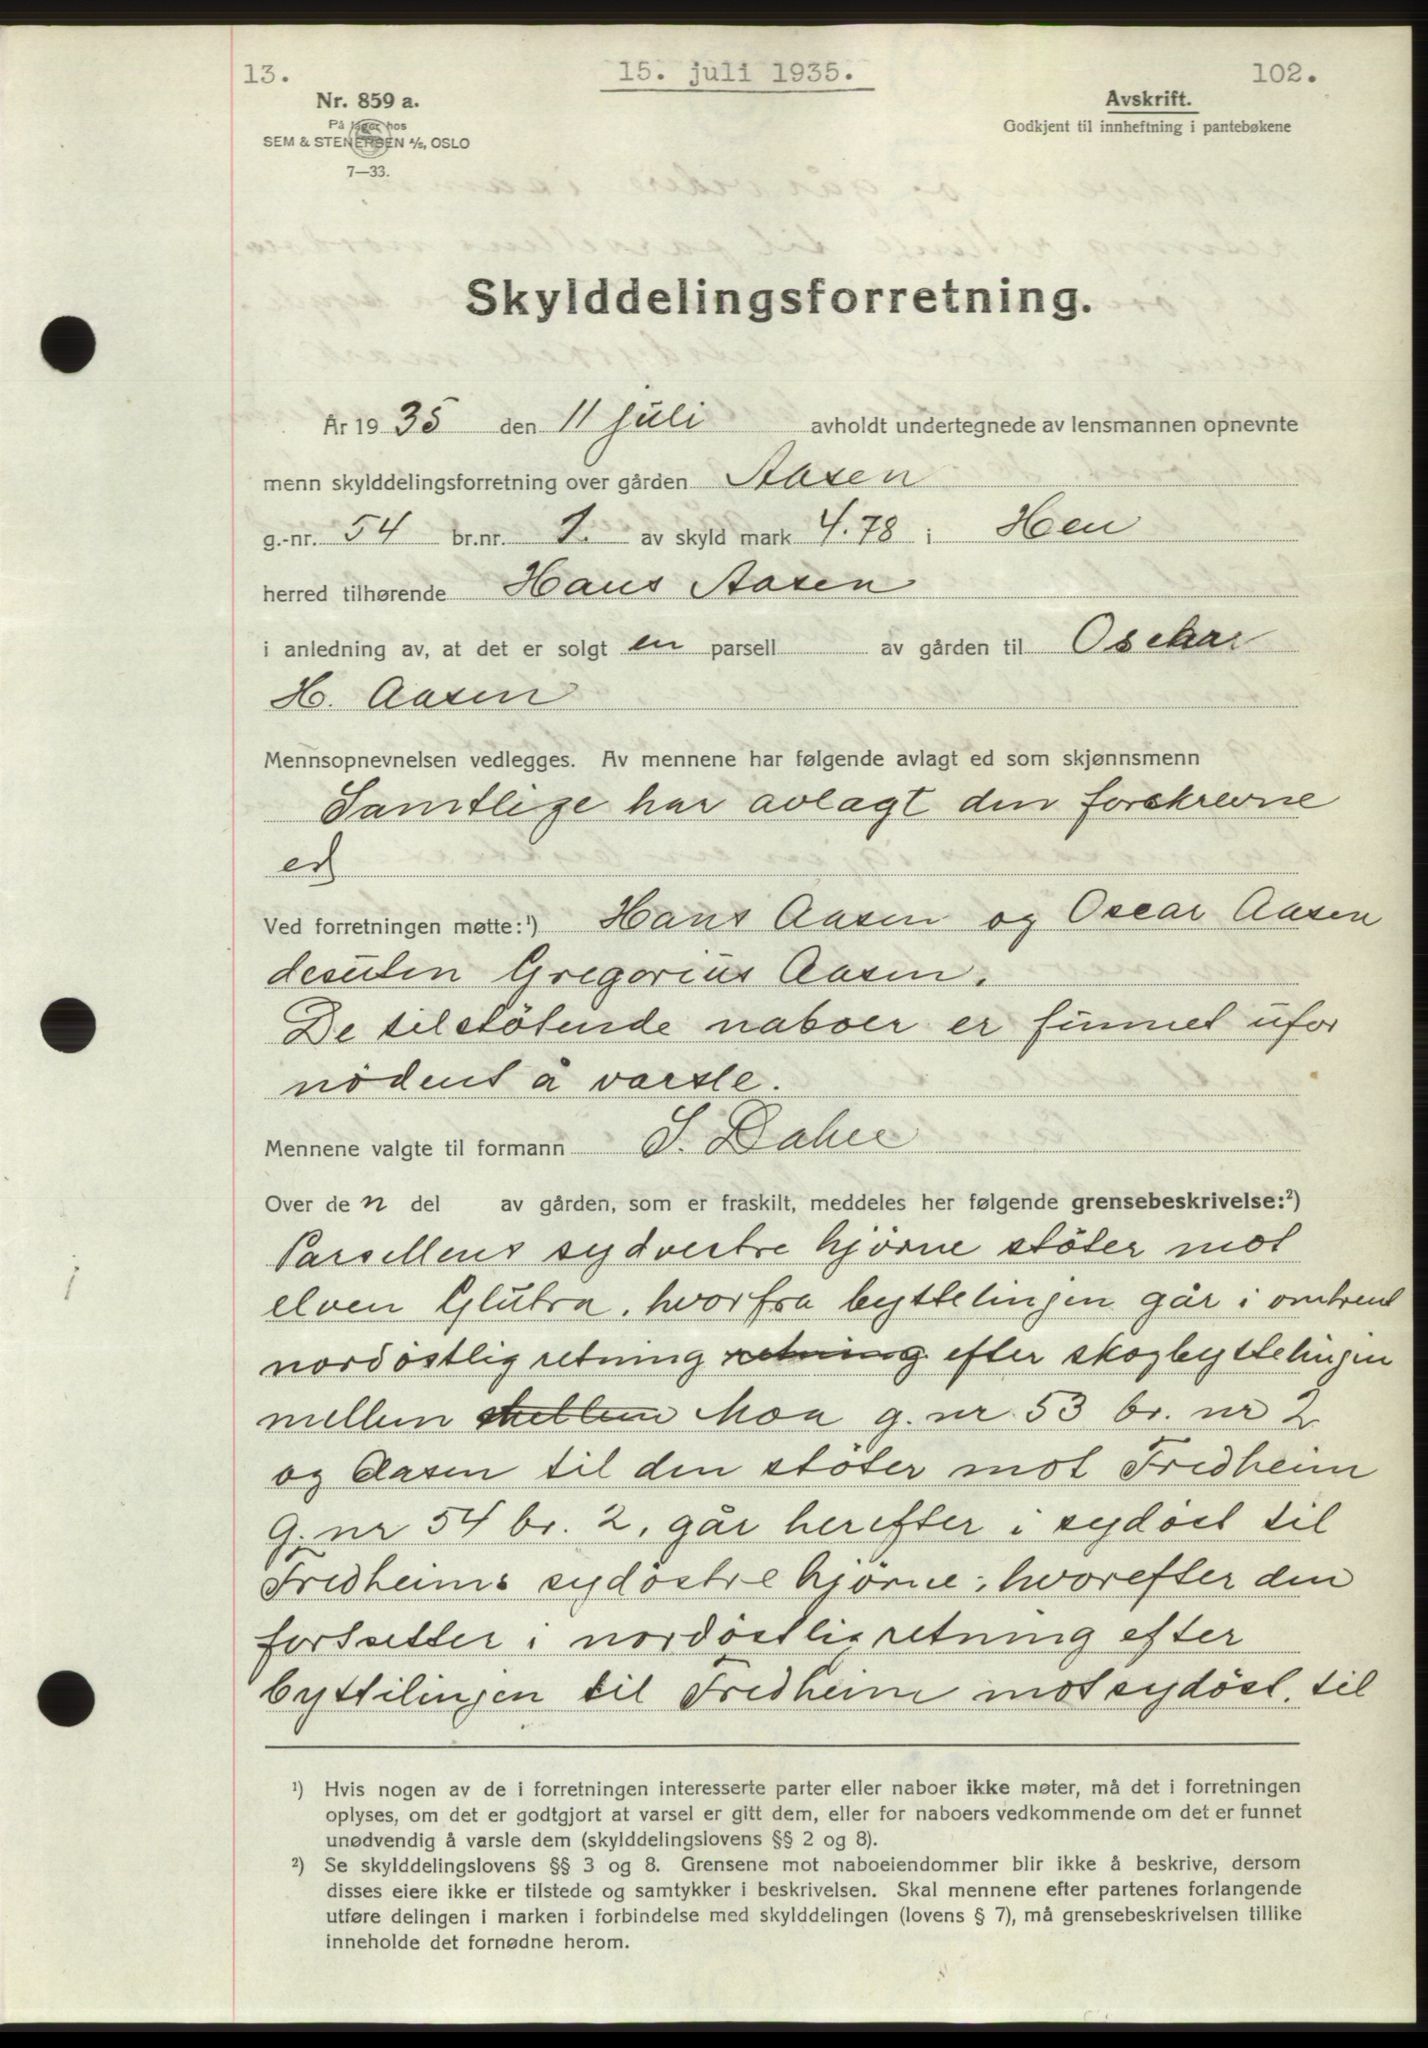 13.
15. juli 1935.
102.
Nr. 859 a.
På lager hos
SEM & STENERSEN A/S, OSLO
7—33.
Avskrift.
Godkjent til innheftning i pantebøkene
Skylddelingsforretning.
År 1935 den 11 juli avholdt undertegnede av lensmannen opnevnte
menn skylddelingsforretning over gården Aasen
g.-nr. 54 br.nr. 1. av skyld mark 4.78 i Hen
herred tilhørende Hans Aasen
i anledning av, at det er solgt en parsell av gården til Oschar
H. Aasen
Mennsopnevnelsen vedlegges. Av mennene har følgende avlagt ed som skjønnsmenn
Samtlige har avlagt den forskrevne
ed
Ved forretningen møtte:¹) Hans Aasen og Oscar Aasen
desuten Gregorius Aasen.
De tilstötende naboer er funnet ufor
nödent å varsle.
Mennene valgte til formann S. Dahle
Over den del av gården, som er fraskilt, meddeles her følgende grensebeskrivelse:²)
Parsellens sydvestre hjörne stöter mot
elven Glutra, hvorfra byttelinjen går i omtrent
nordöstlig retning retning efter skogbyttelinjen
mellem mellem Moa g. nr 53 br. nr 2
og Aasen til den stöter mot Fredheim
g. nr 54 br. 2, går herefter i sydöst til
Fredheims sydöstre hjörne, hvorefter den
fortsetter i nordöstlig retning efter
byttilinjen til Fredheim mot sydöst, til
¹) Hvis nogen av de i forretningen interesserte parter eller naboer ikke møter, må det i forretningen
oplyses, om det er godtgjort at varsel er gitt dem, eller for naboers vedkommende om det er funnet
unødvendig å varsle dem (skylddelingslovens §§ 2 og 8).
²) Se skylddelingslovens §§ 3 og 8. Grensene mot naboeiendommer blir ikke å beskrive, dersom
disses eiere ikke er tilstede og samtykker i beskrivelsen. Skal mennene efter partenes forlangende
utføre delingen i marken i forbindelse med skylddelingen (lovens § 7), må grensebeskrivelsen tillike
inneholde det fornødne herom.